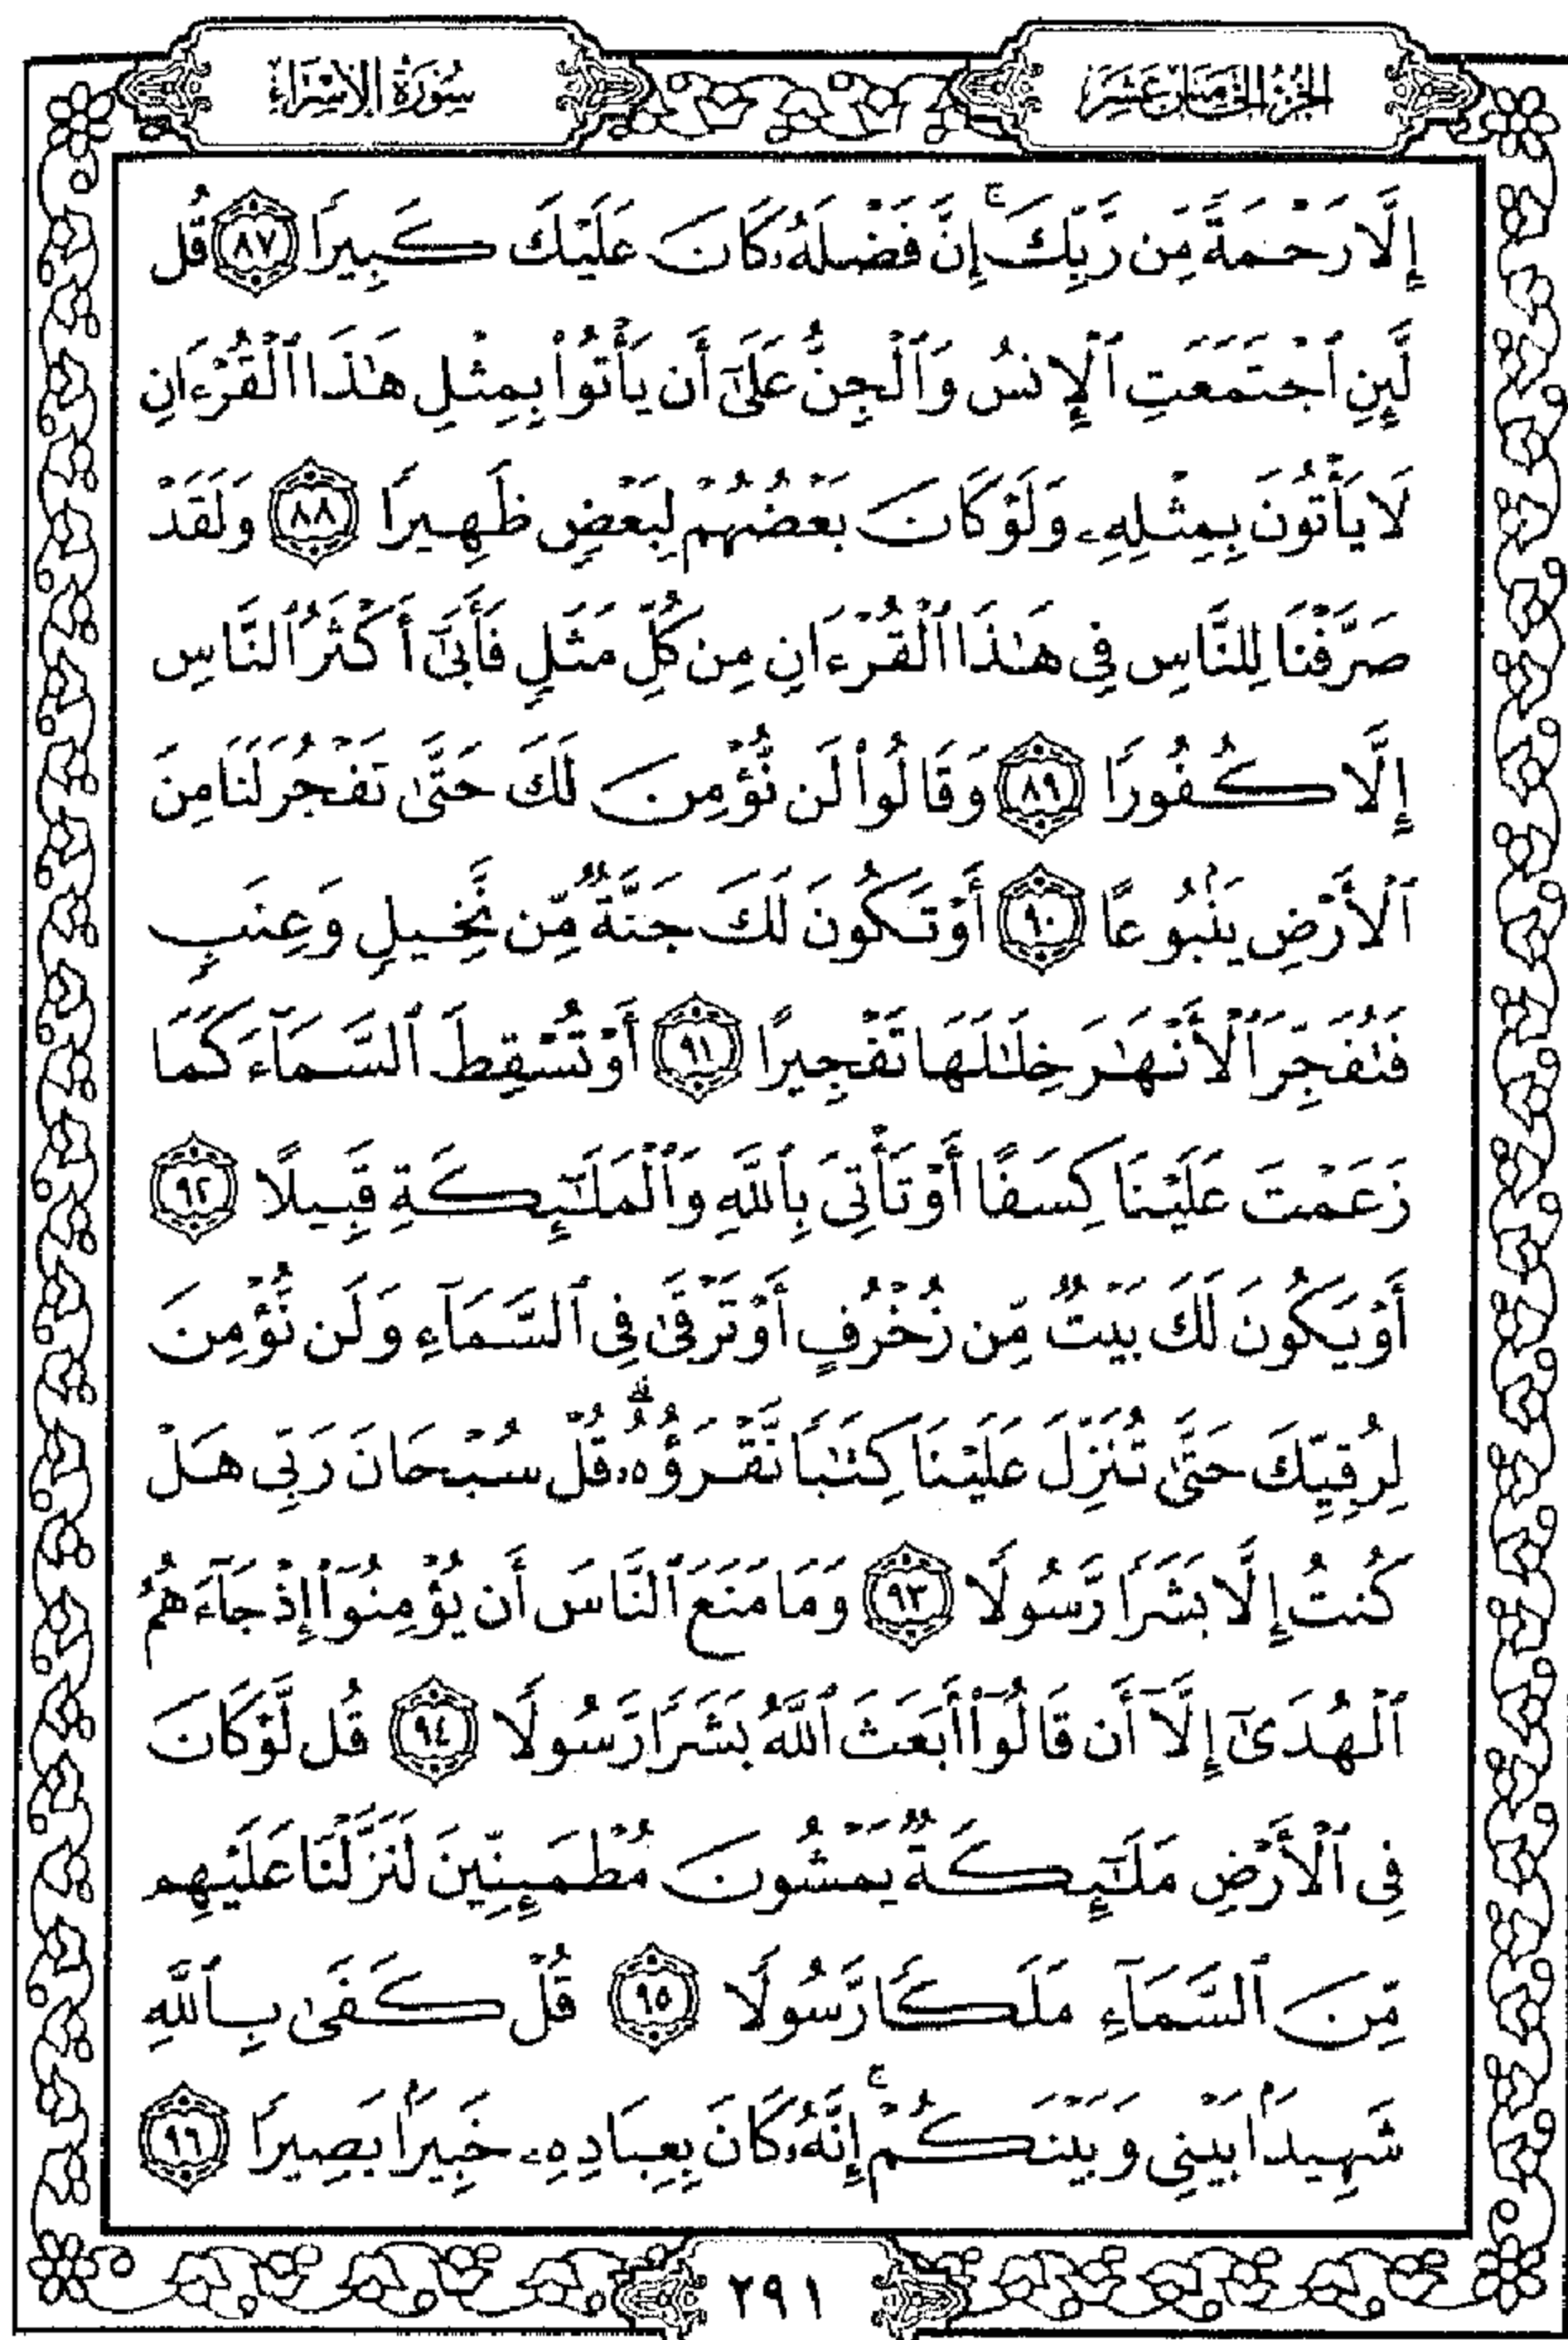 الجزء الخامس عشر
سورة الإسراء
إِلَّا رَحْمَةً مِّن رَّبِّكَ ۚ إِنَّ فَضْلَهُۥ كَانَ عَلَيْكَ كَبِيرًا ٨٧ قُل
لَّئِنِ ٱجْتَمَعَتِ ٱلْإِنسُ وَٱلْجِنُّ عَلَىٰٓ أَن يَأْتُوا۟ بِمِثْلِ هَـٰذَا ٱلْقُرْءَانِ
لَا يَأْتُونَ بِمِثْلِهِۦ وَلَوْ كَانَ بَعْضُهُمْ لِبَعْضٍ ظَهِيرًا ٨٨ وَلَقَدْ
صَرَّفْنَا لِلنَّاسِ فِى هَـٰذَا ٱلْقُرْءَانِ مِن كُلِّ مَثَلٍ فَأَبَىٰٓ أَكْثَرُ ٱلنَّاسِ
إِلَّا كُفُورًا ٨٩ وَقَالُوا۟ لَن نُّؤْمِنَ لَكَ حَتَّىٰ تَفْجُرَ لَنَا مِنَ
ٱلْأَرْضِ يَنۢبُوعًا ٩٠ أَوْ تَكُونَ لَكَ جَنَّةٌ مِّن نَّخِيلٍ وَعِنَبٍ
فَتُفَجِّرَ ٱلْأَنْهَـٰرَ خِلَـٰلَهَا تَفْجِيرًا ٩١ أَوْ تُسْقِطَ ٱلسَّمَآءَ كَمَا
زَعَمْتَ عَلَيْنَا كِسَفًا أَوْ تَأْتِىَ بِٱللَّهِ وَٱلْمَلَـٰٓئِكَةِ قَبِيلًا ٩٢
أَوْ يَكُونَ لَكَ بَيْتٌ مِّن زُخْرُفٍ أَوْ تَرْقَىٰ فِى ٱلسَّمَآءِ وَلَن نُّؤْمِنَ
لِرُقِيِّكَ حَتَّىٰ تُنَزِّلَ عَلَيْنَا كِتَـٰبًا نَّقْرَؤُهُۥ ۗ قُلْ سُبْحَانَ رَبِّى هَلْ
كُنتُ إِلَّا بَشَرًا رَّسُولًا ٩٣ وَمَا مَنَعَ ٱلنَّاسَ أَن يُؤْمِنُوٓا۟ إِذْ جَآءَهُمُ
ٱلْهُدَىٰٓ إِلَّآ أَن قَالُوٓا۟ أَبَعَثَ ٱللَّهُ بَشَرًا رَّسُولًا ٩٤ قُل لَّوْ كَانَ
فِى ٱلْأَرْضِ مَلَـٰٓئِكَةٌ يَمْشُونَ مُطْمَئِنِّينَ لَنَزَّلْنَا عَلَيْهِم
مِّنَ ٱلسَّمَآءِ مَلَكًا رَّسُولًا ٩٥ قُلْ كَفَىٰ بِٱللَّهِ
شَهِيدًۢا بَيْنِى وَبَيْنَكُمْ ۚ إِنَّهُۥ كَانَ بِعِبَادِهِۦ خَبِيرًۢا بَصِيرًا ٩٦
٢٩١